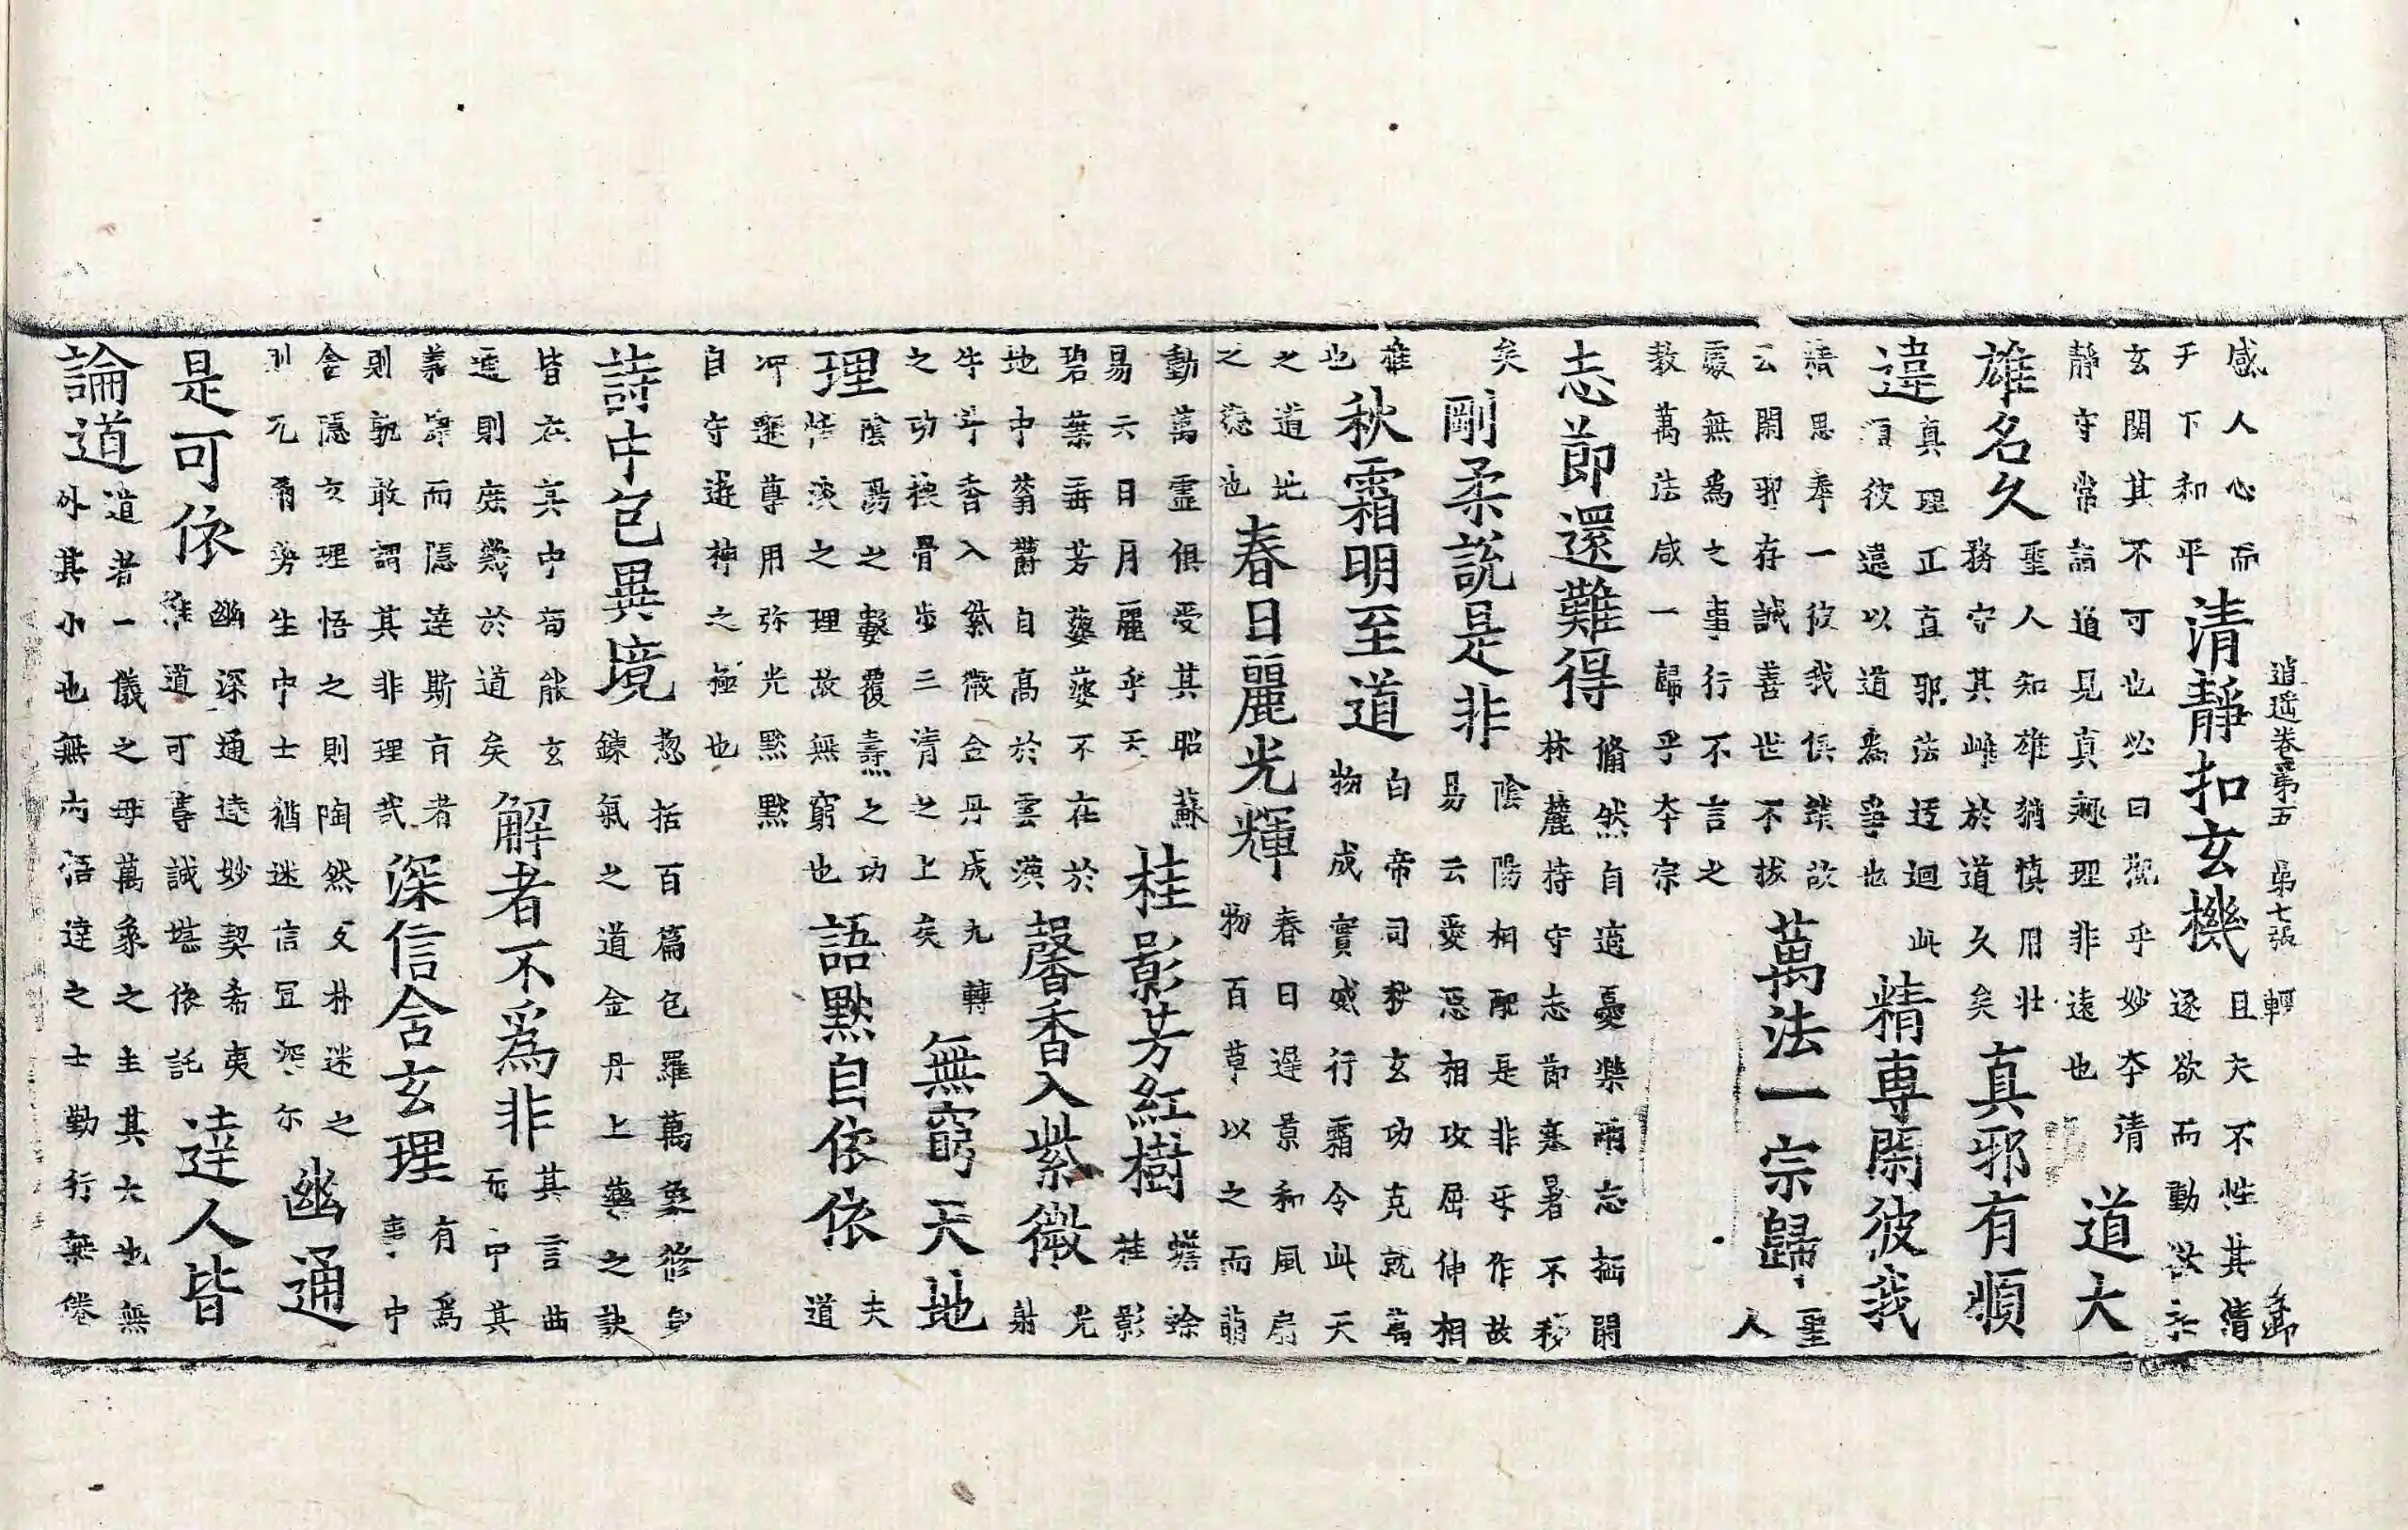 逍遥卷第五 第七張 輕
感人心而
于下和平
清靜扣玄機
且夫不性其情
逐欲而動
玄關其不可也必曰觀乎妙本清
靜守常詣道見真趣理非遠也
道大
雄名久
聖人知雄猶慎用壯
務守其雌於道久矣
真邪有順
違
真理正直邪法迂迴此
順彼違以道爲爭也
精專閑彼我
精思奉一彼我俱故
云閑邪存誠善世不拔
萬法一宗歸
聖
人
處無爲之事行不言之
教萬法咸一歸乎本宗
志節還難得
翛然自適憂樂兩忘栖閑
林麓持守志節寒暑不移
矣
剛柔說是非
陰陽相配是非乎作故
易云愛惡相攻屈伸相
推
也
秋霜明至道
白帝司秋玄功克就萬
物成實威行霜令此天
之道地
之德也
春日麗光輝
春日遲景和風扇
物百草以之而萌
動萬靈俱受其昭蘇
易云日月麗乎天
桂影芳紅樹
蟾蜍
桂影
碧葉垂芳不在於
地中蓊鬱自高於雲漢
馨香入紫微
光
射
牛斗香入紫微金丹成九轉
之功積骨步三清之上矣
無窮天地
理
陰陽之數覆燾之功
恬淡之理故無窮也
語默自依依
夫
道
冲邃尊用弥光默默
自守遊神之極也
詩中包異境
惣括百篇包羅萬象修身
鍊氣之道金丹上藥之訣
皆在其中苟能玄
通則庶幾於道矣
解者不爲非
其言曲
而中其
義肆而隱達斯有者
則孰敢謂其非理哉
深信含玄理
有爲
事中
含隱玄理悟之則陶然反朴迷之
則冗有勞生中士猶迷信宜深尓
幽通
是可依
幽深通遠妙契希夷
唯道可尊誠堪依託
達人皆
論道
道者一儀之母萬象之主其大也無
外其小也無內悟達之士勤行無倦